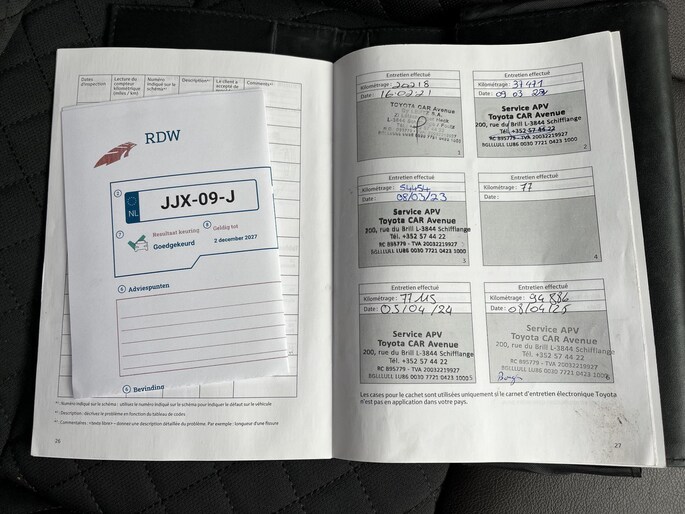 Dates d'inspection
Lecture du compteur kilométrique (miles / km)
Numéro indiqué sur le schéma*¹
Description*²
Le client a accepté de
Commentaires*³
RDW
2
NL
JJX-09-J
7
Resultaat keuring
Goedgekeurd
8
Geldig tot
2 december 2027
6 Adviespunten
5 Bevinding
*¹ : Numéro indiqué sur le schéma : utilisez le numéro indiqué sur le schéma pour indiquer le défaut sur le véhicule
*² : Description : décrivez le problème en fonction du tableau de codes
*³ : Commentaires : <texte libre> – donnez une description détaillée du problème. Par exemple : longueur d'une fissure
26
Entretien effectué
Kilométrage : 20218
Date : 16.02.21
TOYOTA CAR Avenue
1
Entretien effectué
Kilométrage : 37471
Date : 09 03 22
Service APV
Toyota CAR Avenue
200, rue du Brill L-3844 Schifflange
Tél. +352 57 44 22
RC B95779 - TVA 20032219927
BGLLLULL LU86 0030 7721 0423 1000
2
Entretien effectué
Kilométrage : 54454
Date : 08/03/23
Service APV
Toyota CAR Avenue
200, rue du Brill L-3844 Schifflange
Tél. +352 57 44 22
RC B95779 - TVA 20032219927
BGLLLULL LU86 0030 7721 0423 1000
3
Entretien effectué
Kilométrage : 77
Date :
4
Entretien effectué
Kilométrage : 77115
Date : 05/04/24
Service APV
Toyota CAR Avenue
200, rue du Brill L-3844 Schifflange
Tél. +352 57 44 22
RC B95779 - TVA 20032219927
BGLLLULL LU86 0030 7721 0423 1000
5
Entretien effectué
Kilométrage : 94886
Date : 08/04/25
Service APV
Toyota CAR Avenue
200, rue du Brill L-3844 Schifflange
Tél. +352 57 44 22
RC B95779 - TVA 20032219927
BGLLLULL LU86 0030 7721 0423 1000
6
Les cases pour le cachet sont utilisées uniquement si le carnet d'entretien électronique Toyota
n'est pas en application dans votre pays.
27